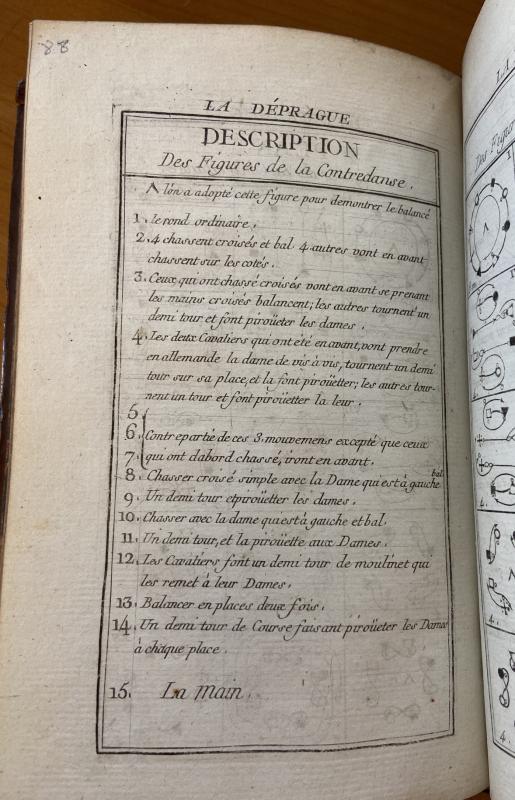 88
LA DÉPRAGUE
DESCRIPTION
Des Figures de la Contredanse.
A l'on a adopté cette figure pour demontrer le balancé
1. le rond ordinaire.
2. 4 chassent croisés et bal. 4 autres vont en avant
chassent sur les cotés.
3. Ceux qui ont chassé croisés vont en avant se prenant
les mains croisés balancent; les autres tournent un
demi tour et font piroüeter les dames.
4. Les deux Cavaliers qui ont été en avant, vont prendre
en allemande la dame de vis à vis, tournent un demi
tour sur sa place, et la font piroüetter; les autres tour-
nent un tour et font piroüetter la leur.
5.
6. Contrepartie de ces 3. mouvemens excepté que ceux
7. qui ont dabord chassé, iront en avant.
8. Chasser croisé simple avec la Dame qui est à gauche bal.
9. Un demi tour et piroüetter les dames.
10. Chasser avec la dame qui est à gauche et bal.
11. Un demi tour, et la piroüette aux Dames.
12. Les Cavaliers font un demi tour de moulinet qui
les remet à leur Dames.
13. Balancer en places deux fois.
14. Un demi tour de Course faisant piroüeter les Dames
à chaque place.
15. La main.
LA
Des Figur